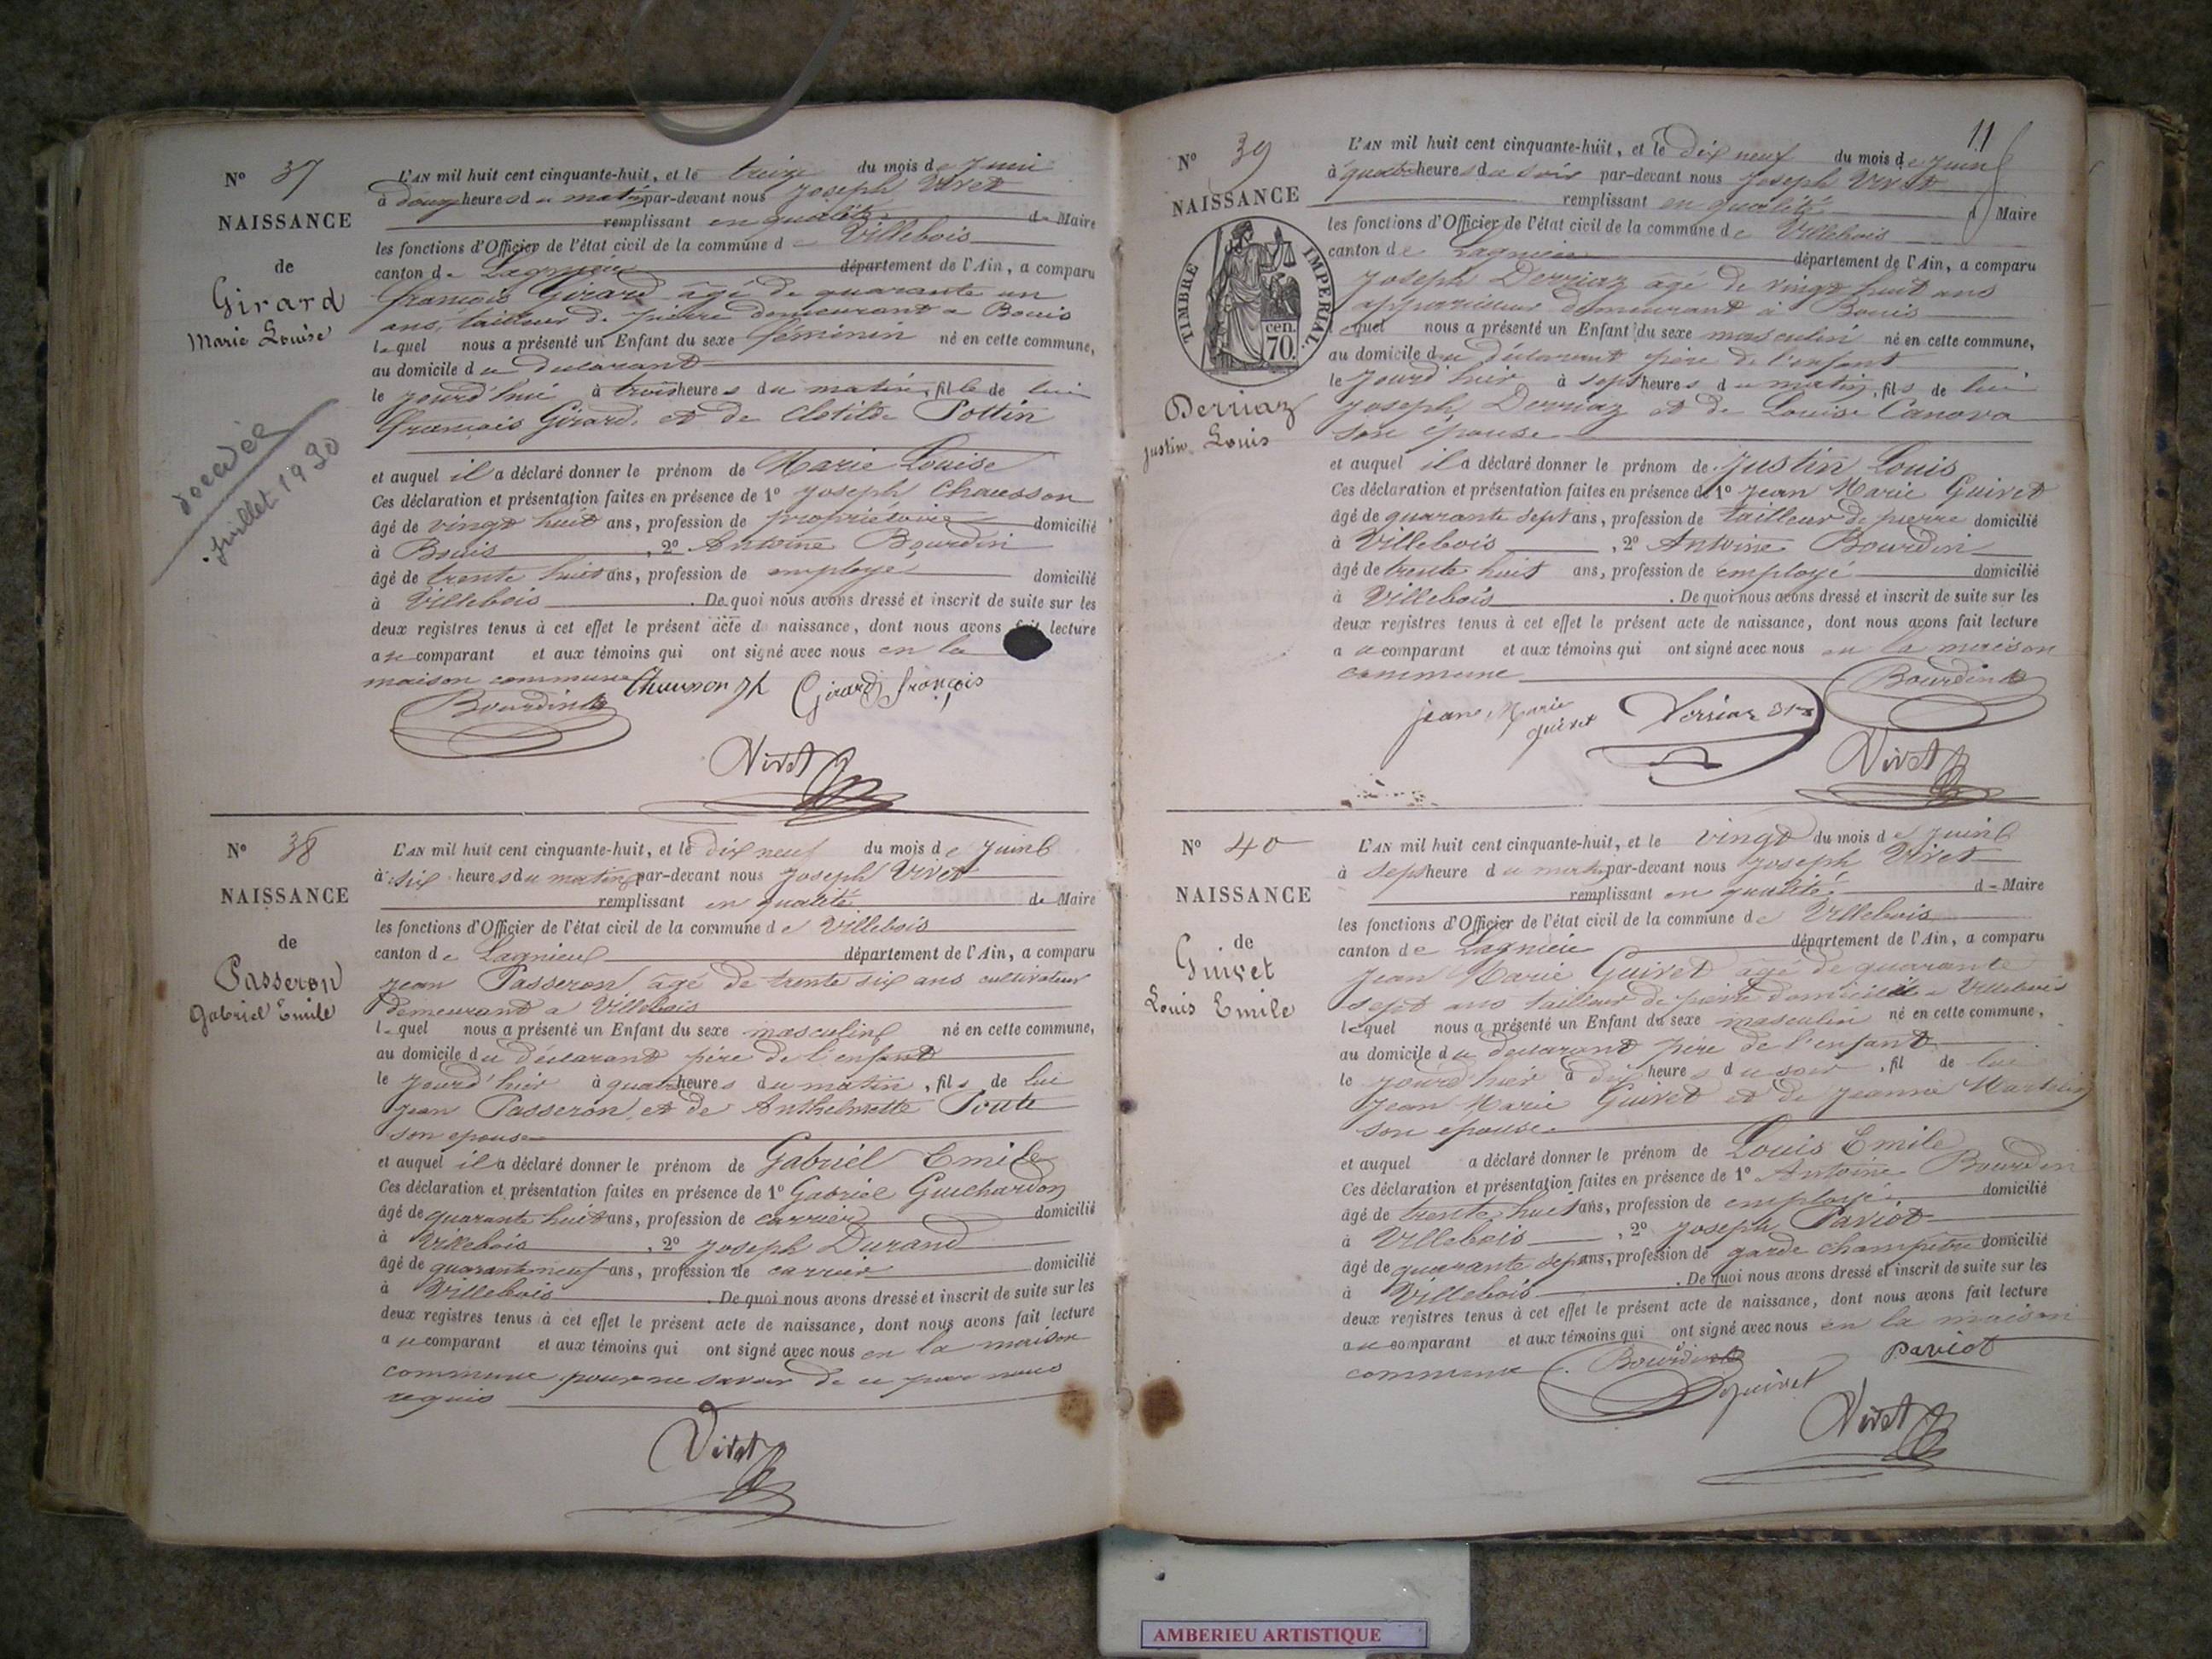 N° 37
NAISSANCE
de
Girard
Marie Louise
décédée
juillet 1930
L'AN mil huit cent cinquante-huit, et le treize du mois de juin
à douze heures du matin par-devant nous Joseph Vivet
remplissant en qualité de Maire
les fonctions d'Officier de l'état civil de la commune de Villebois
canton de Lagnieu département de l'Ain, a comparu
françois Girard âgé de quarante un
ans, tailleur de pierre demeurant a Bouis
lequel nous a présenté un Enfant du sexe féminin né en cette commune,
au domicile du declarant
le jourd'hui à trois heures du matin, fille de lui
françois Girard, et de Clotilde Pottin
et auquel il a déclaré donner le prénom de Marie Louise
Ces déclaration et présentation faites en présence de 1° Joseph Chausson
âgé de vingt huit ans, profession de propriétaire domicilié
à Bouis, 2° Antoine Bourdin
âgé de trente huit ans, profession de employé domicilié
à Villebois. De quoi nous avons dressé et inscrit de suite sur les
deux registres tenus à cet effet le présent acte de naissance, dont nous avons lecture
au comparant et aux témoins qui ont signé avec nous en la
maison commune
Chausson Jh Girard françois
Bourdin
Vivet
N° 38
NAISSANCE
de
Passeron
Gabriel Emile
L'AN mil huit cent cinquante-huit, et le dix neuf du mois de juin
à six heures du matin par-devant nous Joseph Vivet
remplissant en qualité de Maire
les fonctions d'Officier de l'état civil de la commune de Villebois
canton de Lagnieu département de l'Ain, a comparu
Jean Passeron, âgé de trente six ans cultivateur
demeurant a Villebois
lequel nous a présenté un Enfant du sexe masculin né en cette commune,
au domicile du déclarant père de l'enfant
le jourd'hier à quatre heures du matin, fils de lui
Jean Passeron, et de Anthelmette Poute
son epouse
et auquel il a déclaré donner le prénom de Gabriel Emile
Ces déclaration et présentation faites en présence de 1° Gabriel Guichardon
âgé de quarante huit ans, profession de carrier domicilié
à Villebois, 2° Joseph Durand
âgé de quarante neuf ans, profession de carrier domicilié
à Villebois. De quoi nous avons dressé et inscrit de suite sur les
deux registres tenus à cet effet le présent acte de naissance, dont nous avons fait lecture
au comparant et aux témoins qui ont signé avec nous en la maison
commune pour ne savoir de ce par nous
requis
Vivet
11
N° 39
NAISSANCE
TIMBRE IMPERIAL
70 cen.
Derriaz
Justin Louis
L'AN mil huit cent cinquante-huit, et le dix neuf du mois de juin
à quatre heures du soir par-devant nous Joseph Vivet
remplissant en qualité d Maire
les fonctions d'Officier de l'état civil de la commune de Villebois
canton de Lagnieu département de l'Ain, a comparu
Joseph Derriaz âgé de vingt huit ans
appareilleur demeurant à Bouis
lequel nous a présenté un Enfant du sexe masculin né en cette commune,
au domicile du déclarant père de l'enfant
le jourd'hier à sept heures du matin, fils de lui
Joseph Derriaz et de Louise Canova
son épouse
et auquel il a déclaré donner le prénom de Justin Louis
Ces déclaration et présentation faites en présence de 1° Jean Marie Guivet
âgé de quarante sept ans, profession de tailleur de pierre domicilié
à Villebois, 2° Antoine Bourdin
âgé de trente huit ans, profession de employé domicilié
à Villebois. De quoi nous avons dressé et inscrit de suite sur les
deux registres tenus à cet effet le présent acte de naissance, dont nous avons fait lecture
au comparant et aux témoins qui ont signé avec nous en la maison
commune
Bourdin
jean Marie guivet
Derriaz
Vivet
N° 40
NAISSANCE
de
Guivet
Louis Emile
L'AN mil huit cent cinquante-huit, et le vingt du mois de juin
à sept heure du matin par-devant nous Joseph Vivet
remplissant en qualité d Maire
les fonctions d'Officier de l'état civil de la commune de Villebois
canton de Lagnieu département de l'Ain, a comparu
Jean Marie Guivet âgé de quarante
sept ans tailleur de pierre domicilié a Villebois
lequel nous a présenté un Enfant du sexe masculin né en cette commune,
au domicile du declarant père de l'enfant
le jourd'hier à dix heures du soir, fil de lui
Jean Marie Guivet et de Jeanne
son epouse
et auquel a déclaré donner le prénom de Louis Emile
Ces déclaration et présentation faites en présence de 1° Antoine Bourdin
âgé de trente huit ans, profession de employé domicilié
à Villebois, 2° Joseph Paviot
âgé de quarante sept ans, profession de garde champêtre domicilié
à Villebois. De quoi nous avons dressé et inscrit de suite sur les
deux registres tenus à cet effet le présent acte de naissance, dont nous avons fait lecture
au comparant et aux témoins qui ont signé avec nous en la maison
commune. Bourdin Paviot
guivet
Vivet
AMBERIEU ARTISTIQUE